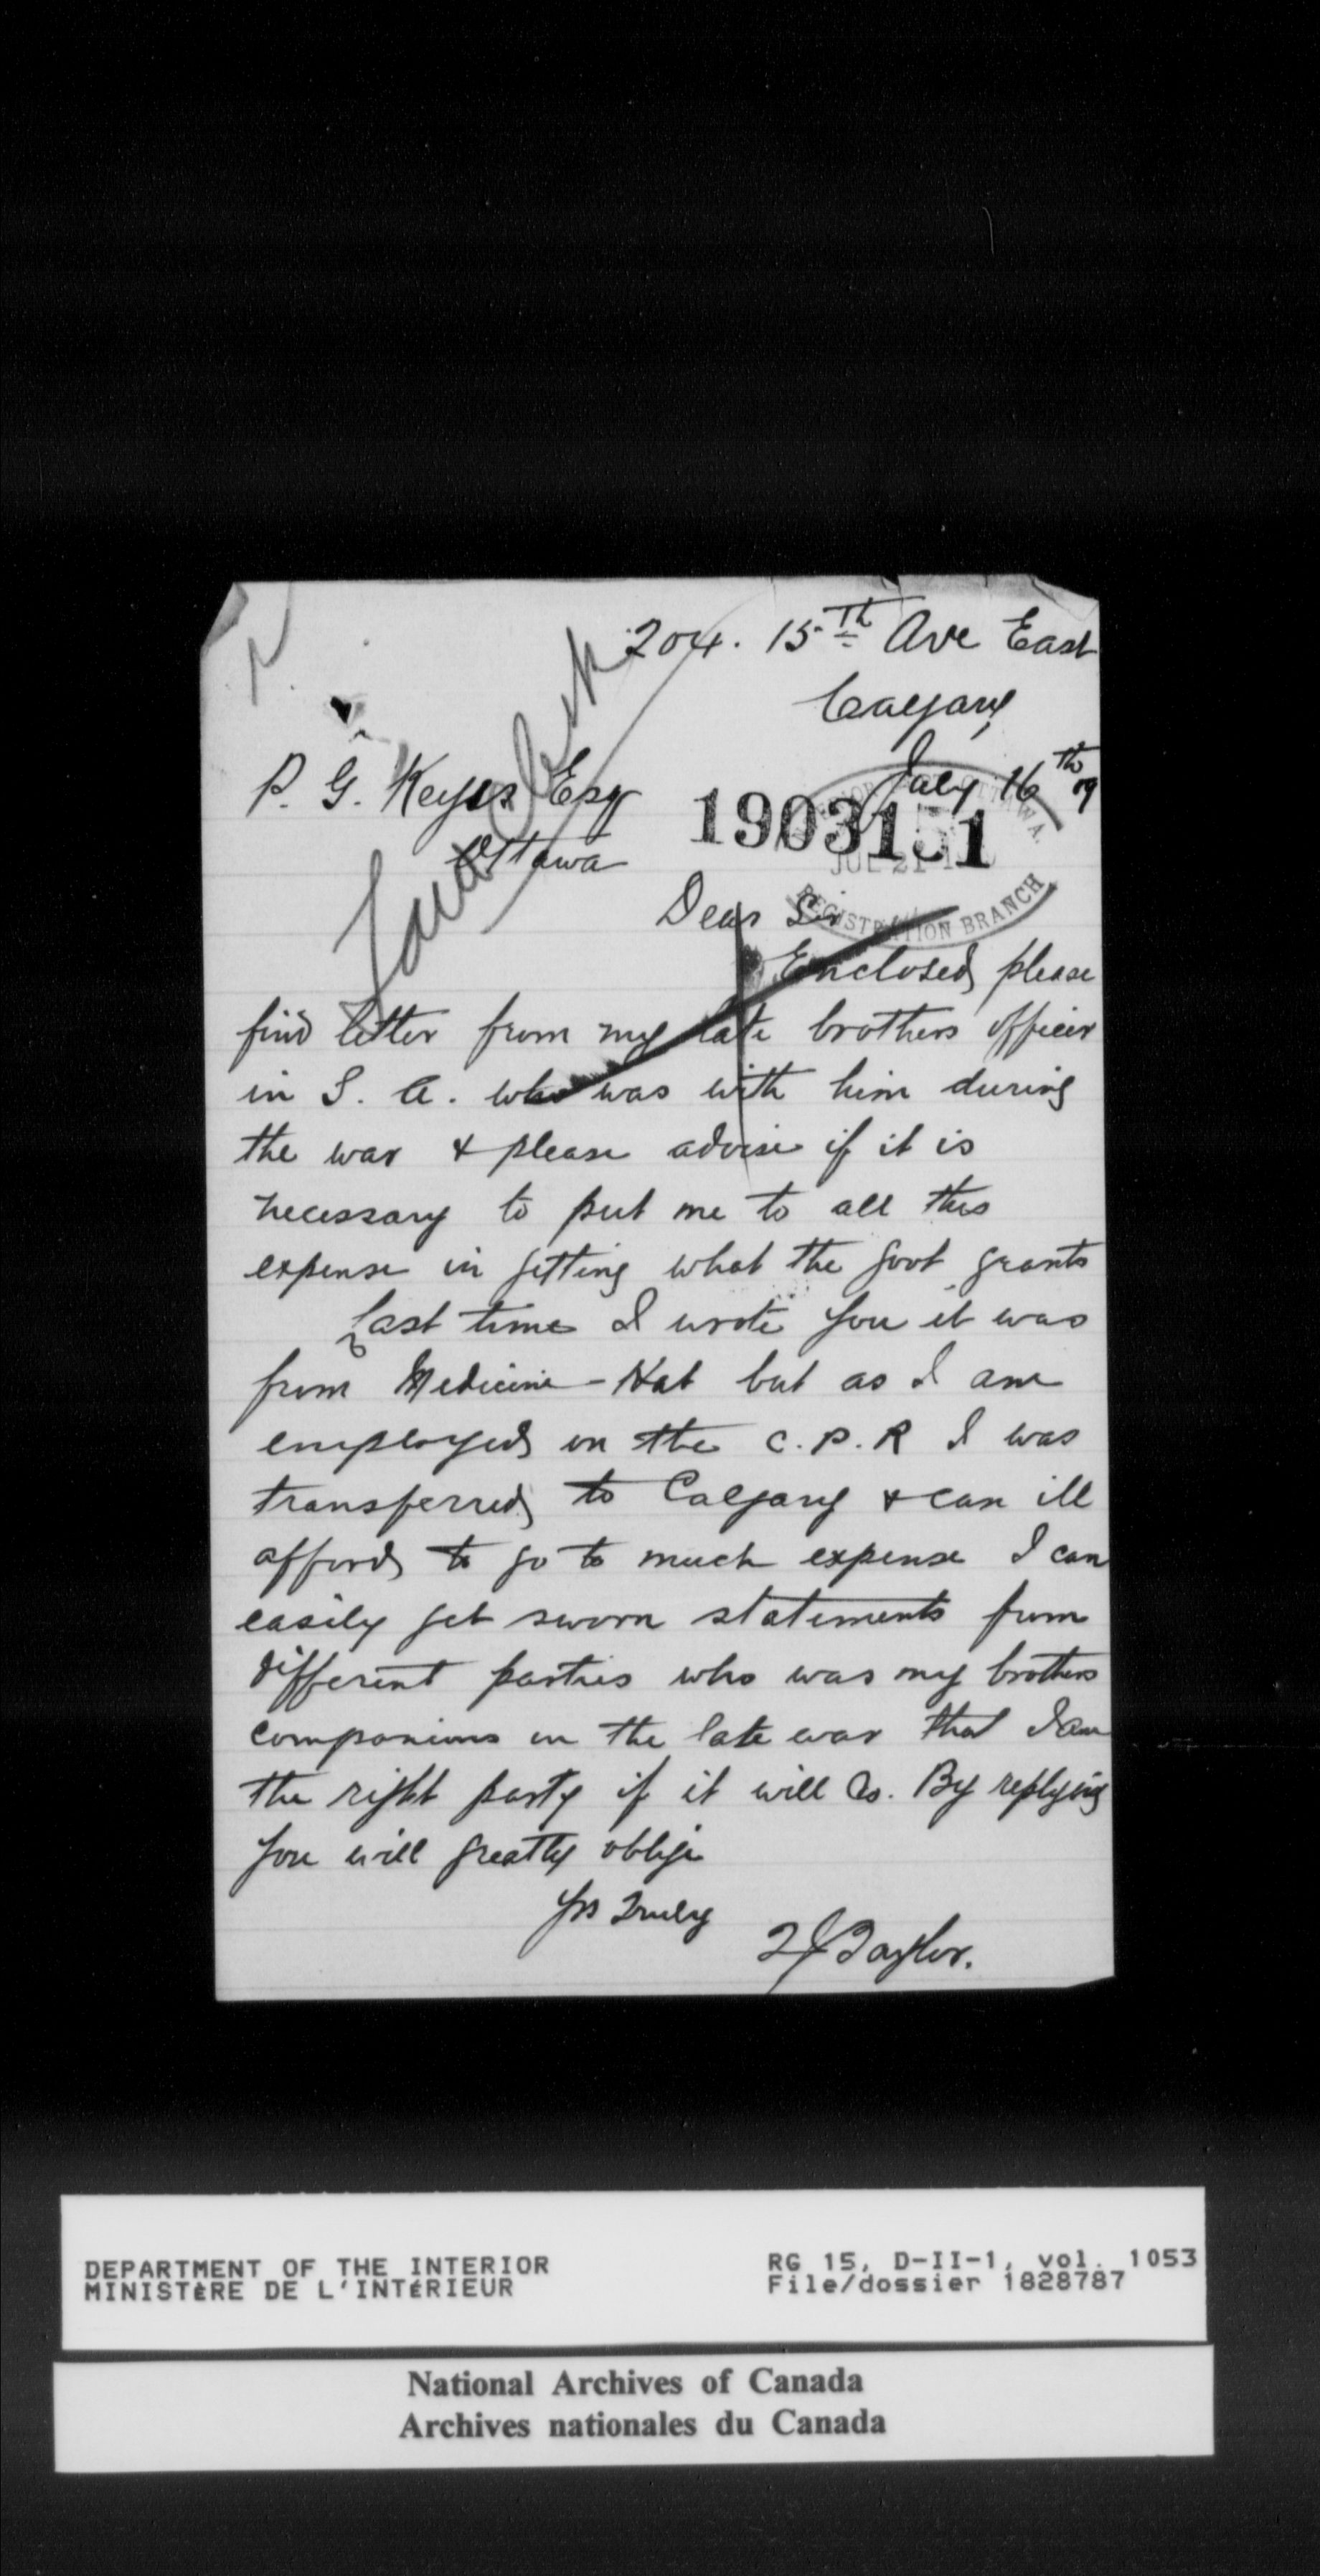 204. 15th Ave East
Calgary
July 16th 09
P. G. Keyes Esq
Ottawa
1903151
OTTAWA.
JUL 21
REGISTRATION BRANCH
Dear Sir
Enclosed please
find letter from my late brothers officer
in S. A. who was with him during
the war & please advise if it is
necessary to put me to all this
expense in getting what the govt grants
Last time I wrote you it was
from Medicine-Hat but as I am
employed on the C.P.R I was
transferred to Calgary & can ill
afford to go to much expense I can
easily get sworn statements from
different parties who was my brothers
companions in the late war that I am
the right party if it will do. By replying
you will greatly oblige
Yrs Truly
T J Taylor.
DEPARTMENT OF THE INTERIOR
MINISTÈRE DE L'INTÉRIEUR
RG 15, D-II-1, vol. 1053
File/dossier 1828787
National Archives of Canada
Archives nationales du Canada